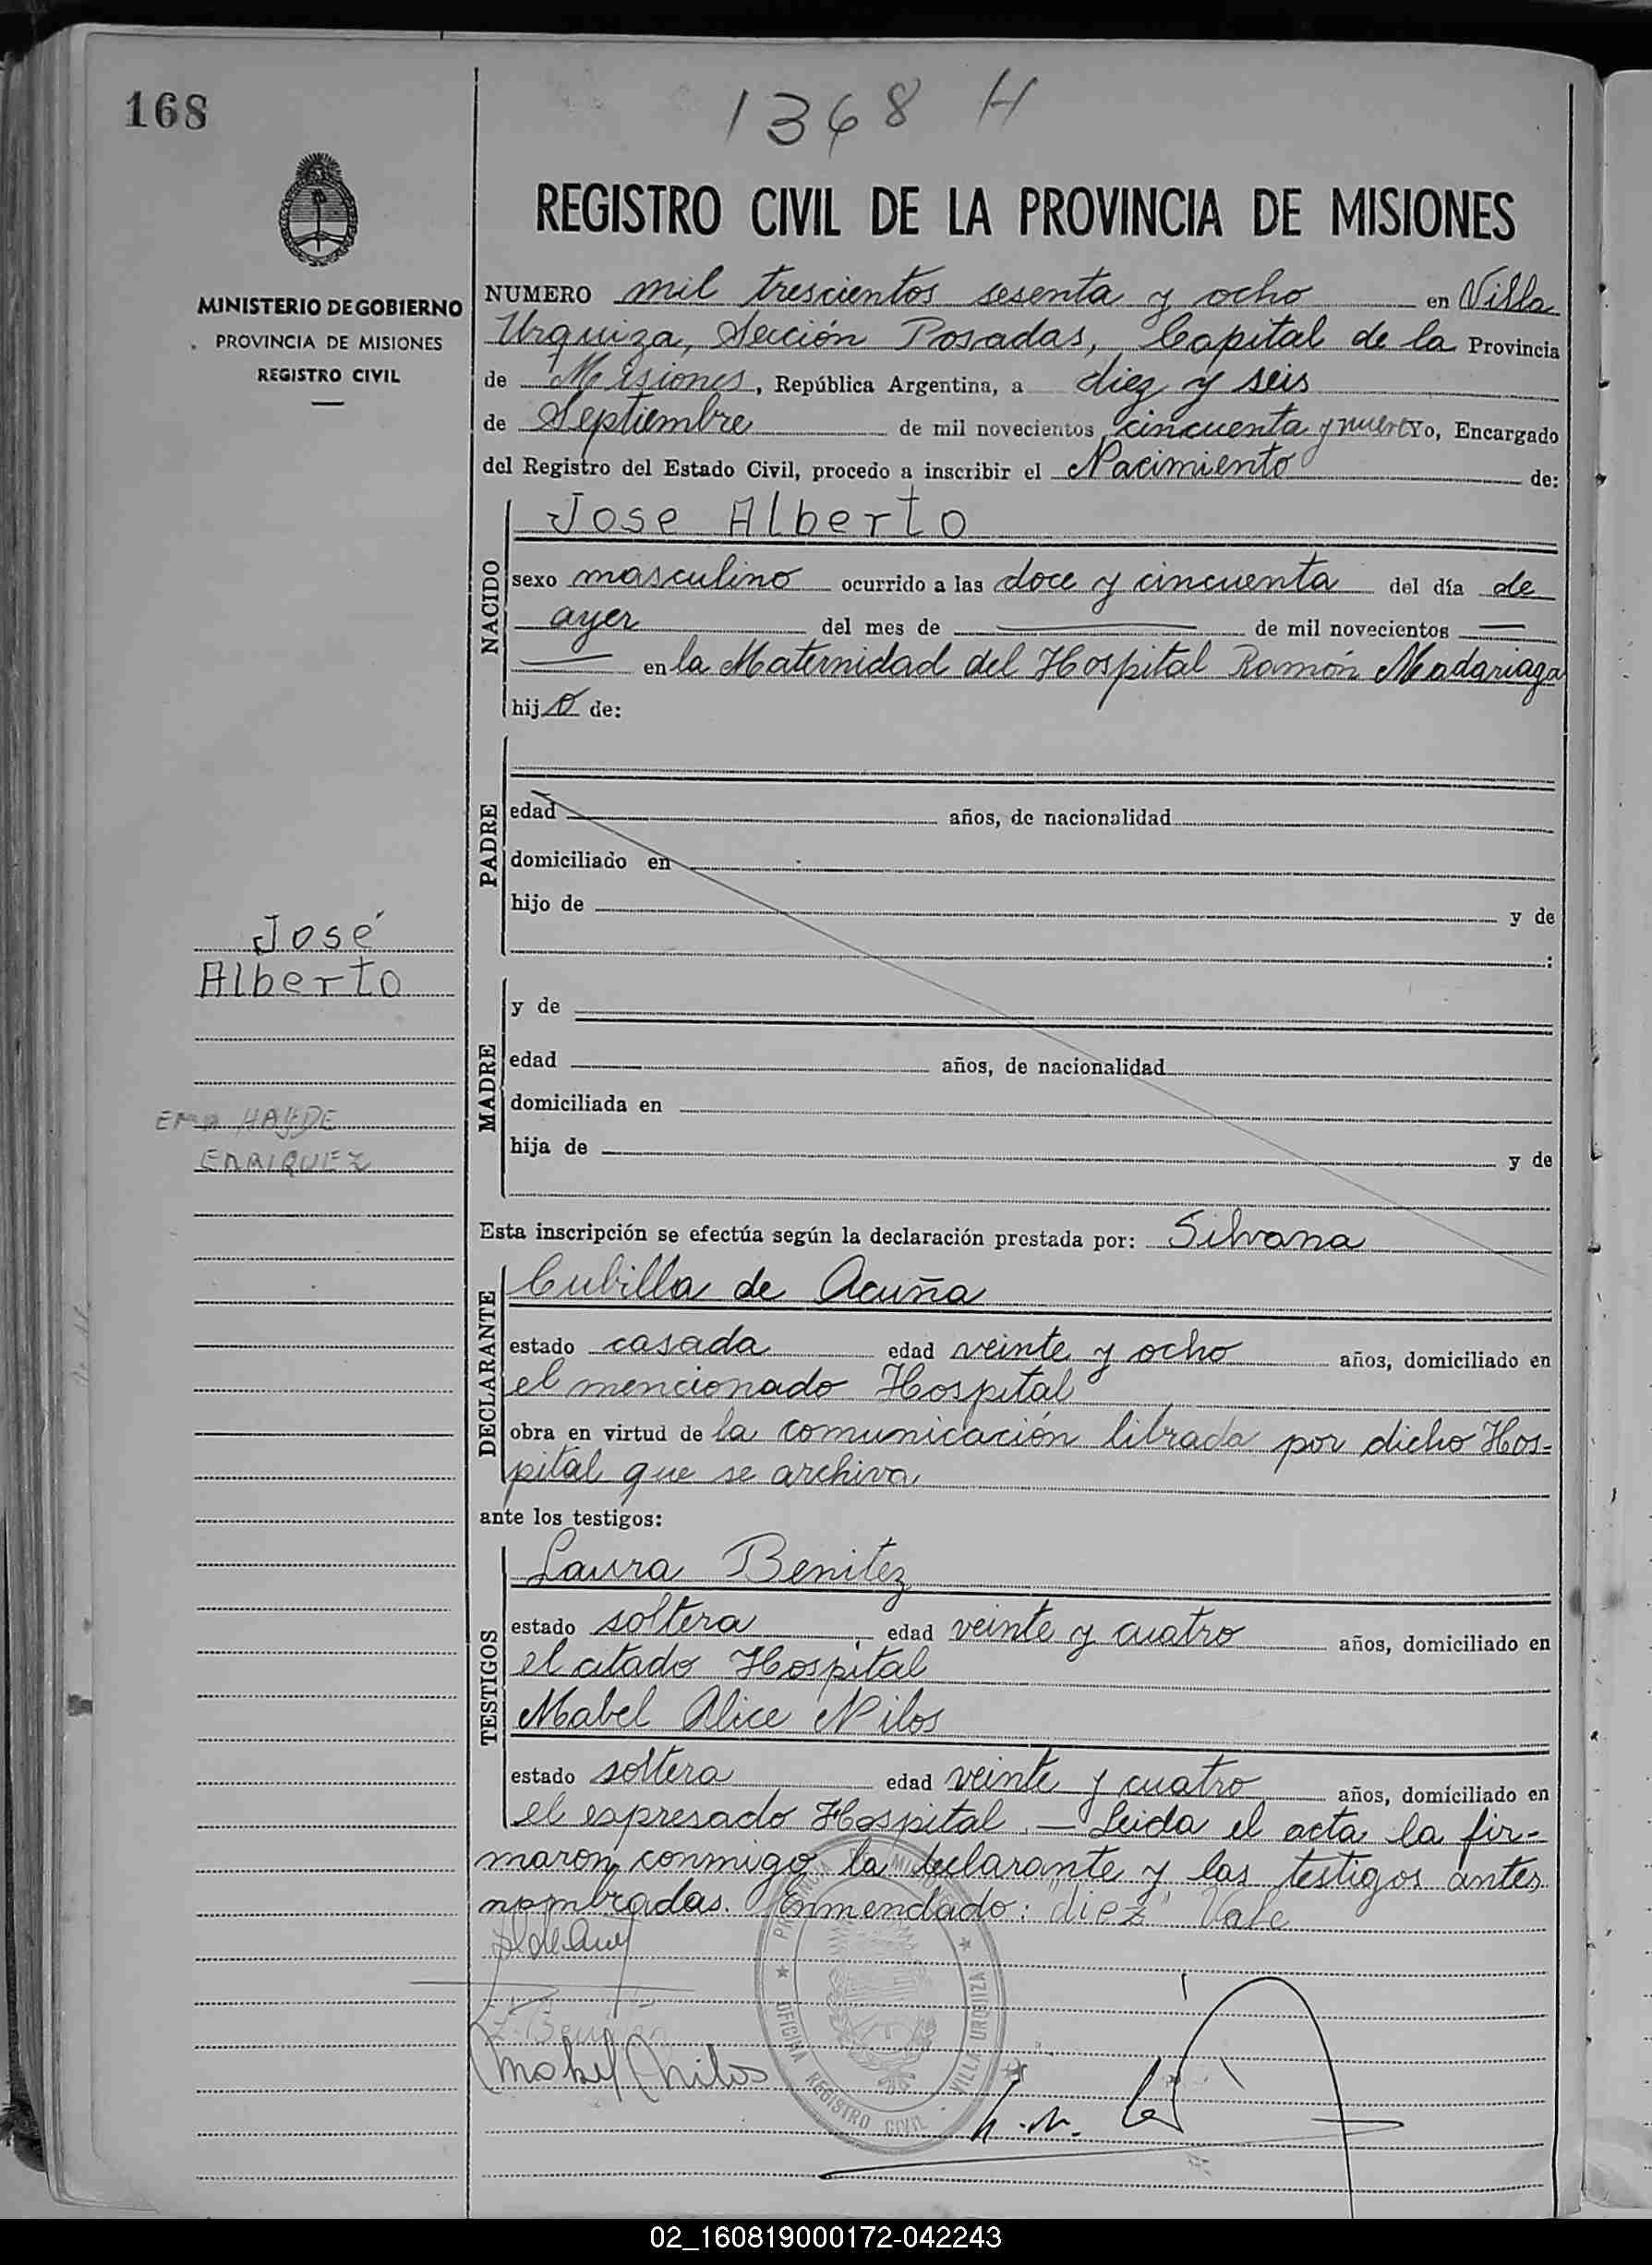 168
1368 H
REGISTRO CIVIL DE LA PROVINCIA DE MISIONES
MINISTERIO DE GOBIERNO
PROVINCIA DE MISIONES
REGISTRO CIVIL
NUMERO mil trescientos sesenta y ocho en Villa
Urquiza, Sección Posadas, Capital de la Provincia
de Misiones, República Argentina, a diez y seis
de Septiembre de mil novecientos cincuenta y nueve Yo, Encargado
del Registro del Estado Civil, procedo a inscribir el Nacimiento de:
NACIDO
Jose Alberto
sexo masculino ocurrido a las doce y cincuenta del día de
ayer del mes de — de mil novecientos —
— en la Maternidad del Hospital Ramón Madariaga
hijo de:
PADRE
edad años, de nacionalidad
domiciliado en
hijo de y de
:
José
Alberto
MADRE
y de
edad años, de nacionalidad
domiciliada en
hija de y de
HAYDE
ENRIQUEZ
Esta inscripción se efectúa según la declaración prestada por: Silvana
DECLARANTE
Cubilla de Acuña
estado casada edad veinte y ocho años, domiciliado en
el mencionado Hospital
obra en virtud de la comunicación librada por dicho Hos-
pital que se archiva
ante los testigos:
TESTIGOS
Laura Benitez
estado soltera edad veinte y cuatro años, domiciliado en
el citado Hospital
Mabel Alice Nilos
estado soltera edad veinte y cuatro años, domiciliado en
el expresado Hospital. — Leida el acta la fir-
maron conmigo la declarante y las testigos antes
nombradas. Enmendado: "diez" Vale
Mabel Nilos
PROVINCIA DE MISIONES
OFICINA REGISTRO CIVIL
VILLA URQUIZA
02_160819000172-042243